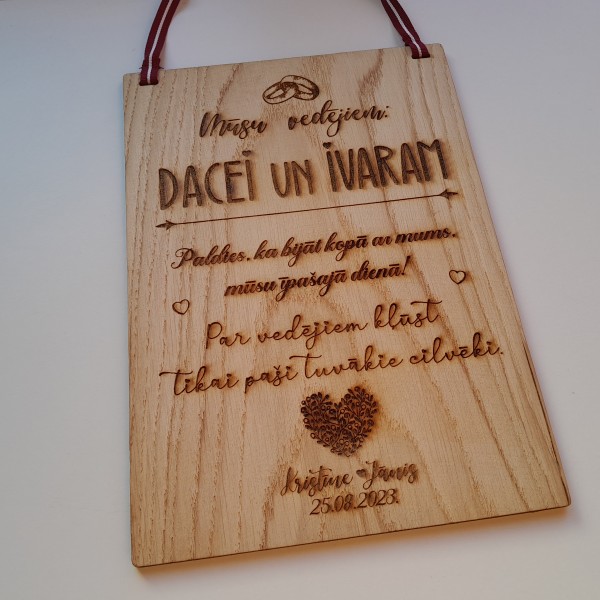 Mūsu vedējiem:
DACEI UN IVARAM
Paldies, ka bijāt kopā ar mums,
mūsu īpašajā dienā!
Par vedējiem kļūst
tikai paši tuvākie cilvēki.
Kristīne Jānis
25.08.2023.